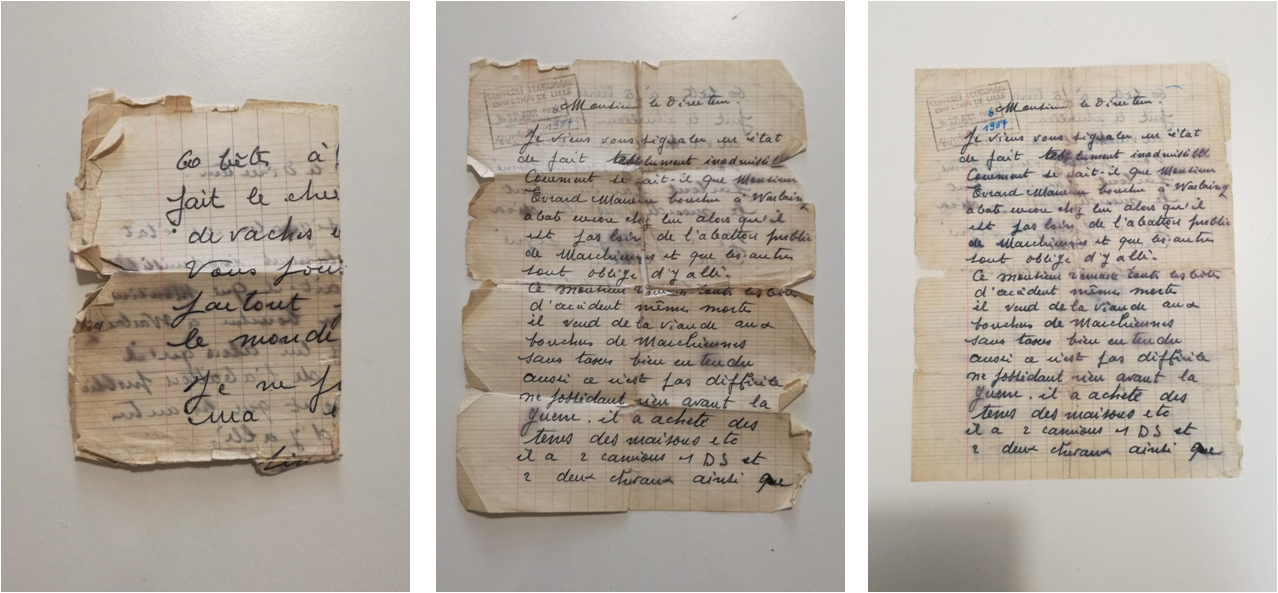 60 bêtes à
fait le che
de vaches
Vous
partout
le monde
Je ne
ma
CONTROLE ECONOMIQUE
DIRECTION DE LILLE
Monsieur le Directeur.
Je viens vous signaler un état
de fait inadmissible
Comment se fait-il que Monsieur
Evrard Maurice boucher à Warlaing
abat encore chez lui alors qu'il
est pas loin de l'abattoir public
de Marchiennes et que les autres
sont obligé d'y allé.
Ce monsieur ramasse toutes les bêtes
d'accident mêmes mortes
il vend de la viande aux
bouchers de Marchiennes
sans taxes bien entendu
aussi ce n'est pas difficile
ne possédant rien avant la
guerre. il a acheté des
terres des maisons etc
il a 2 camions 1 DS et
2 deux chevaux ainsi que
6
1957
Monsieur le Directeur.
Je viens vous signaler un état
de fait inadmissible
Comment se fait-il que Monsieur
Evrard Maurice boucher à Warlaing
abat encore chez lui alors qu'il
est pas loin de l'abattoir public
de Marchiennes et que les autres
sont obligé d'y allé.
Ce monsieur ramasse toutes les bêtes
d'accident mêmes mortes
il vend de la viande aux
bouchers de Marchiennes
sans taxes bien entendu
aussi ce n'est pas difficile
ne possédant rien avant la
guerre. il a acheté des
terres des maisons etc
il a 2 camions 1 DS et
2 deux chevaux ainsi que